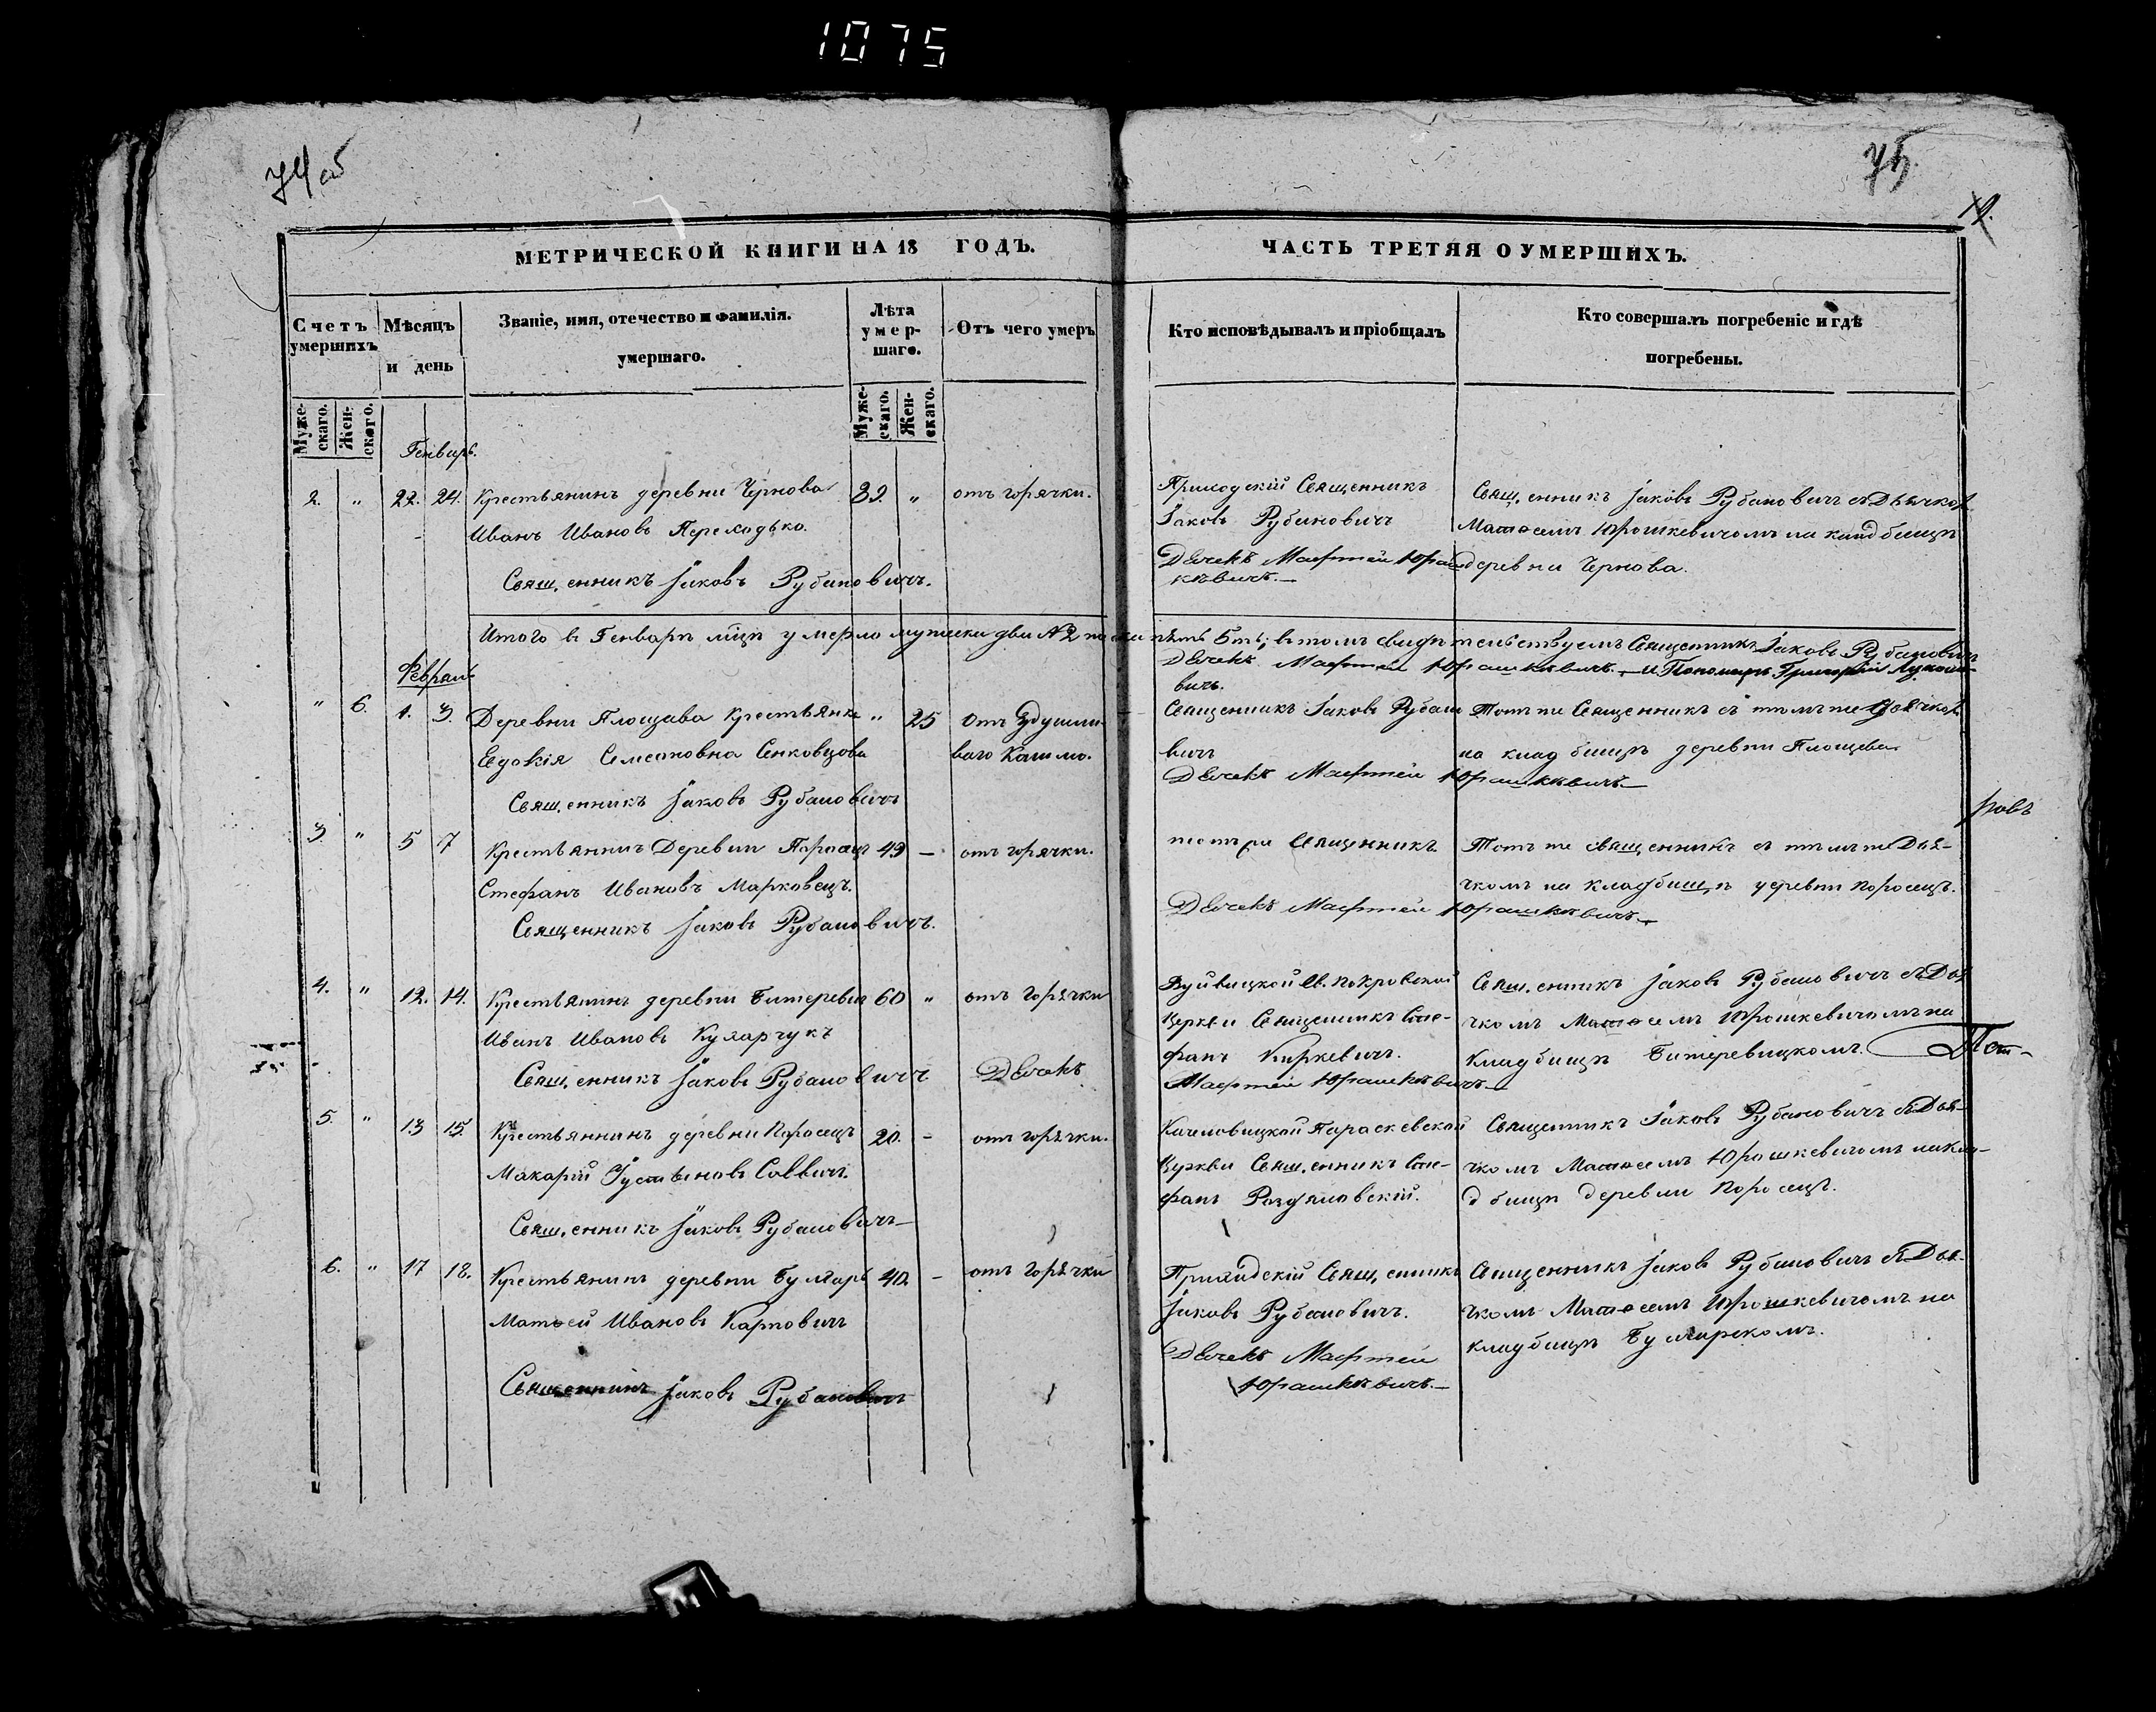 1075
74 об
75.
12.
МЕТРИЧЕСКОЙ КНИГИ НА 18 ГОДЪ.
ЧАСТЬ ТРЕТЯЯ О УМЕРШИХЪ.
Счетъ умершихъ
Мѣсяцъ и день
Званіе, имя, отечество и фамилія.
умершаго.
Лѣта умер-шаго.
Отъ чего умеръ
Кто исповѣдывалъ и пріобщалъ
Кто совершалъ погребеніе и гдѣ
погребены.
Муже-скаго.
Жен-ского.
Муже-скаго.
Жен-скаго.
Генварь.
2. " 22. 24. Крестьянинъ деревни Чернова 32 " отъ горячки.
Иванъ Ивановъ Переходько.
Священникъ Іаковъ Рубановичъ.
Приходскій Священникъ
Іаковъ Рубановичъ
Дьячекъ Матфей Юраш
кѣвичъ.
Священникъ Іаковъ Рубановичъ съ Дьячкомъ
Матѳеемъ Юрошкевичомъ на кладбищѣ
деревни Чернова.
Итого в Генварѣ мцѣ умерло мужеска два № 2 женска пять 5ть; в томъ свидѣтельствуемъ Священникъ Іаковъ Рубановичъ
Дьячекъ Матфей Юрашкѣвичъ. и Пономарь Григорій
вичъ.
Февраль
" 6. 1. 3. Деревни Площава Крестьянка " 25 Отъ Удушли
Евдокія Семеоновна Сенковцова
ваго Кашлю.
Священникъ Іаковъ Рубановичъ
Священникъ Іаковъ Рубано
вичъ
Дьячекъ Матфей Юрашкѣвичъ
Тотъ же Священникъ съ тѣмъ же Дьячкомъ
на кладбищѣ деревни Площева
3. " 5 7 Крестьянинъ Деревни Поросецъ 49 – отъ горячки.
Стефанъ Ивановъ Марковецъ.
Священникъ Іаковъ Рубановичъ.
тотъ же Священникъ.
Дьячекъ Матфей Юрашкѣвичъ
Тотъ же священникъ съ тѣмъ же Дья-
чкомъ на кладбищѣ деревни Поросецъ.
4. " 12. 14. Крестьянинъ деревни 60 " отъ горячки
Иванъ Ивановъ Куларчукъ
Священникъ Іаковъ Рубановичъ
Дьячекъ
Вуйвицкой св. Покровской
Церкви Священникъ Сте-
фанъ Киркевичъ.
Матфей Юрашкѣвичъ
Священникъ Іаковъ Рубановичъ съ Дья
чкомъ Матѳеемъ Юрошкевичомъ на
Кладбищѣ Битеревицкомъ.
5. " 13 15. Крестьянинъ деревни Поросецъ 20. – отъ горячки.
Макарій Іустиновъ Саввичъ.
Священникъ Іаковъ Рубановичъ
Параскевской
Церкви Священникъ Сте-
фанъ
Священникъ Іаковъ Рубановичъ съ Дья-
чкомъ Матѳеемъ Юрошкевичомъ на кла-
дбищѣ деревни Поросецъ.
6. " 17 18. Крестьянинъ деревни Булгары 40. – отъ горячки
Матѳей Ивановъ Карповичъ
Священникъ Іаковъ Рубановичъ
Приходскій Священникъ
Іаковъ Рубановичъ.
Дьячекъ Матфей
Юрашкѣвичъ.
Священникъ Іаковъ Рубановичъ съ Дья-
чкомъ Матѳеемъ Юрошкевичомъ на
кладбищѣ Булгарскомъ.